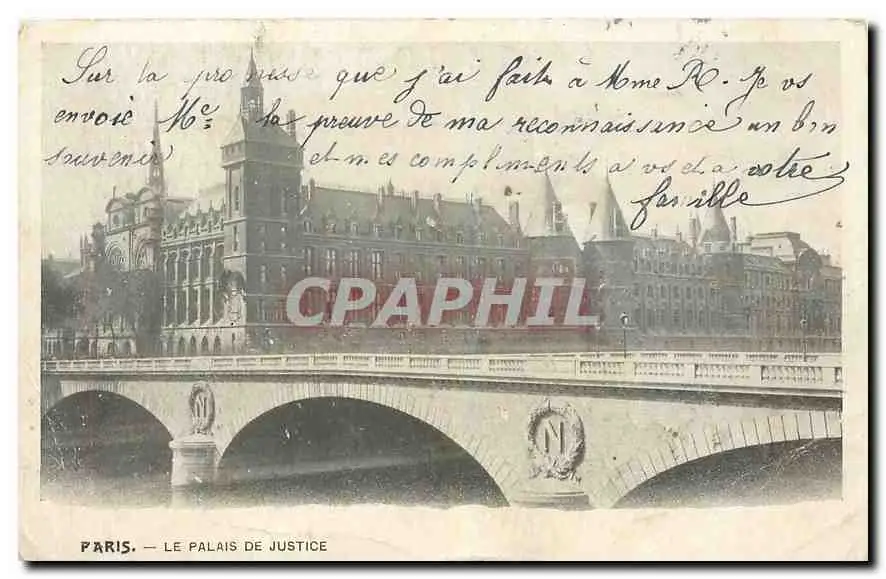 Sur la promesse que j'ai faite à Mme R. Je vs
envoie Me la preuve de ma reconnaissance un bon
souvenir et mes compliments a vs et a votre
famille
CPAPHIL
N
N
PARIS. — LE PALAIS DE JUSTICE